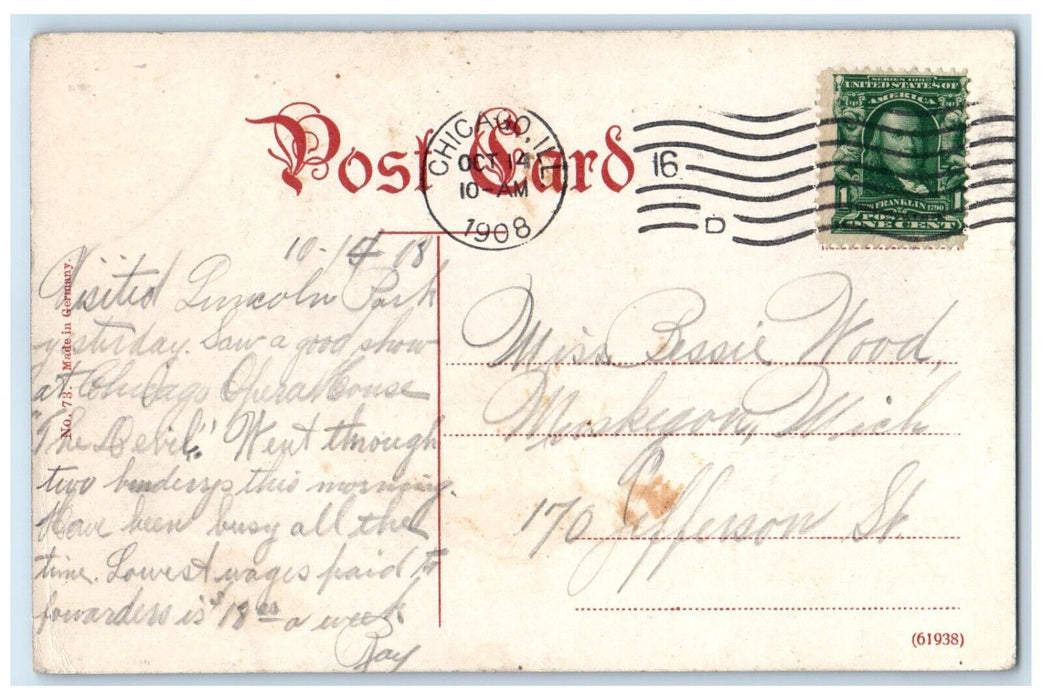 Post Card
CHICAGO, ILL
OCT 14
10-AM
1908
16
D
SERIES 1902
UNITED STATES OF
AMERICA
1 FRANKLIN 1790 1
POSTAGE
ONE CENT
No. 73. Made in Germany.
10-14 08
Visited Lincoln Park
yesterday. Saw a good show
at Chicago Opera House
"The Devil". Went through
two binderys this morning.
Have been busy all the
time. Lowest wages paid to
fowarders is $18 00 a week
Ray
Miss Bessie Wood,
Muskegon, Mich
170 Jefferson St.
(61938)